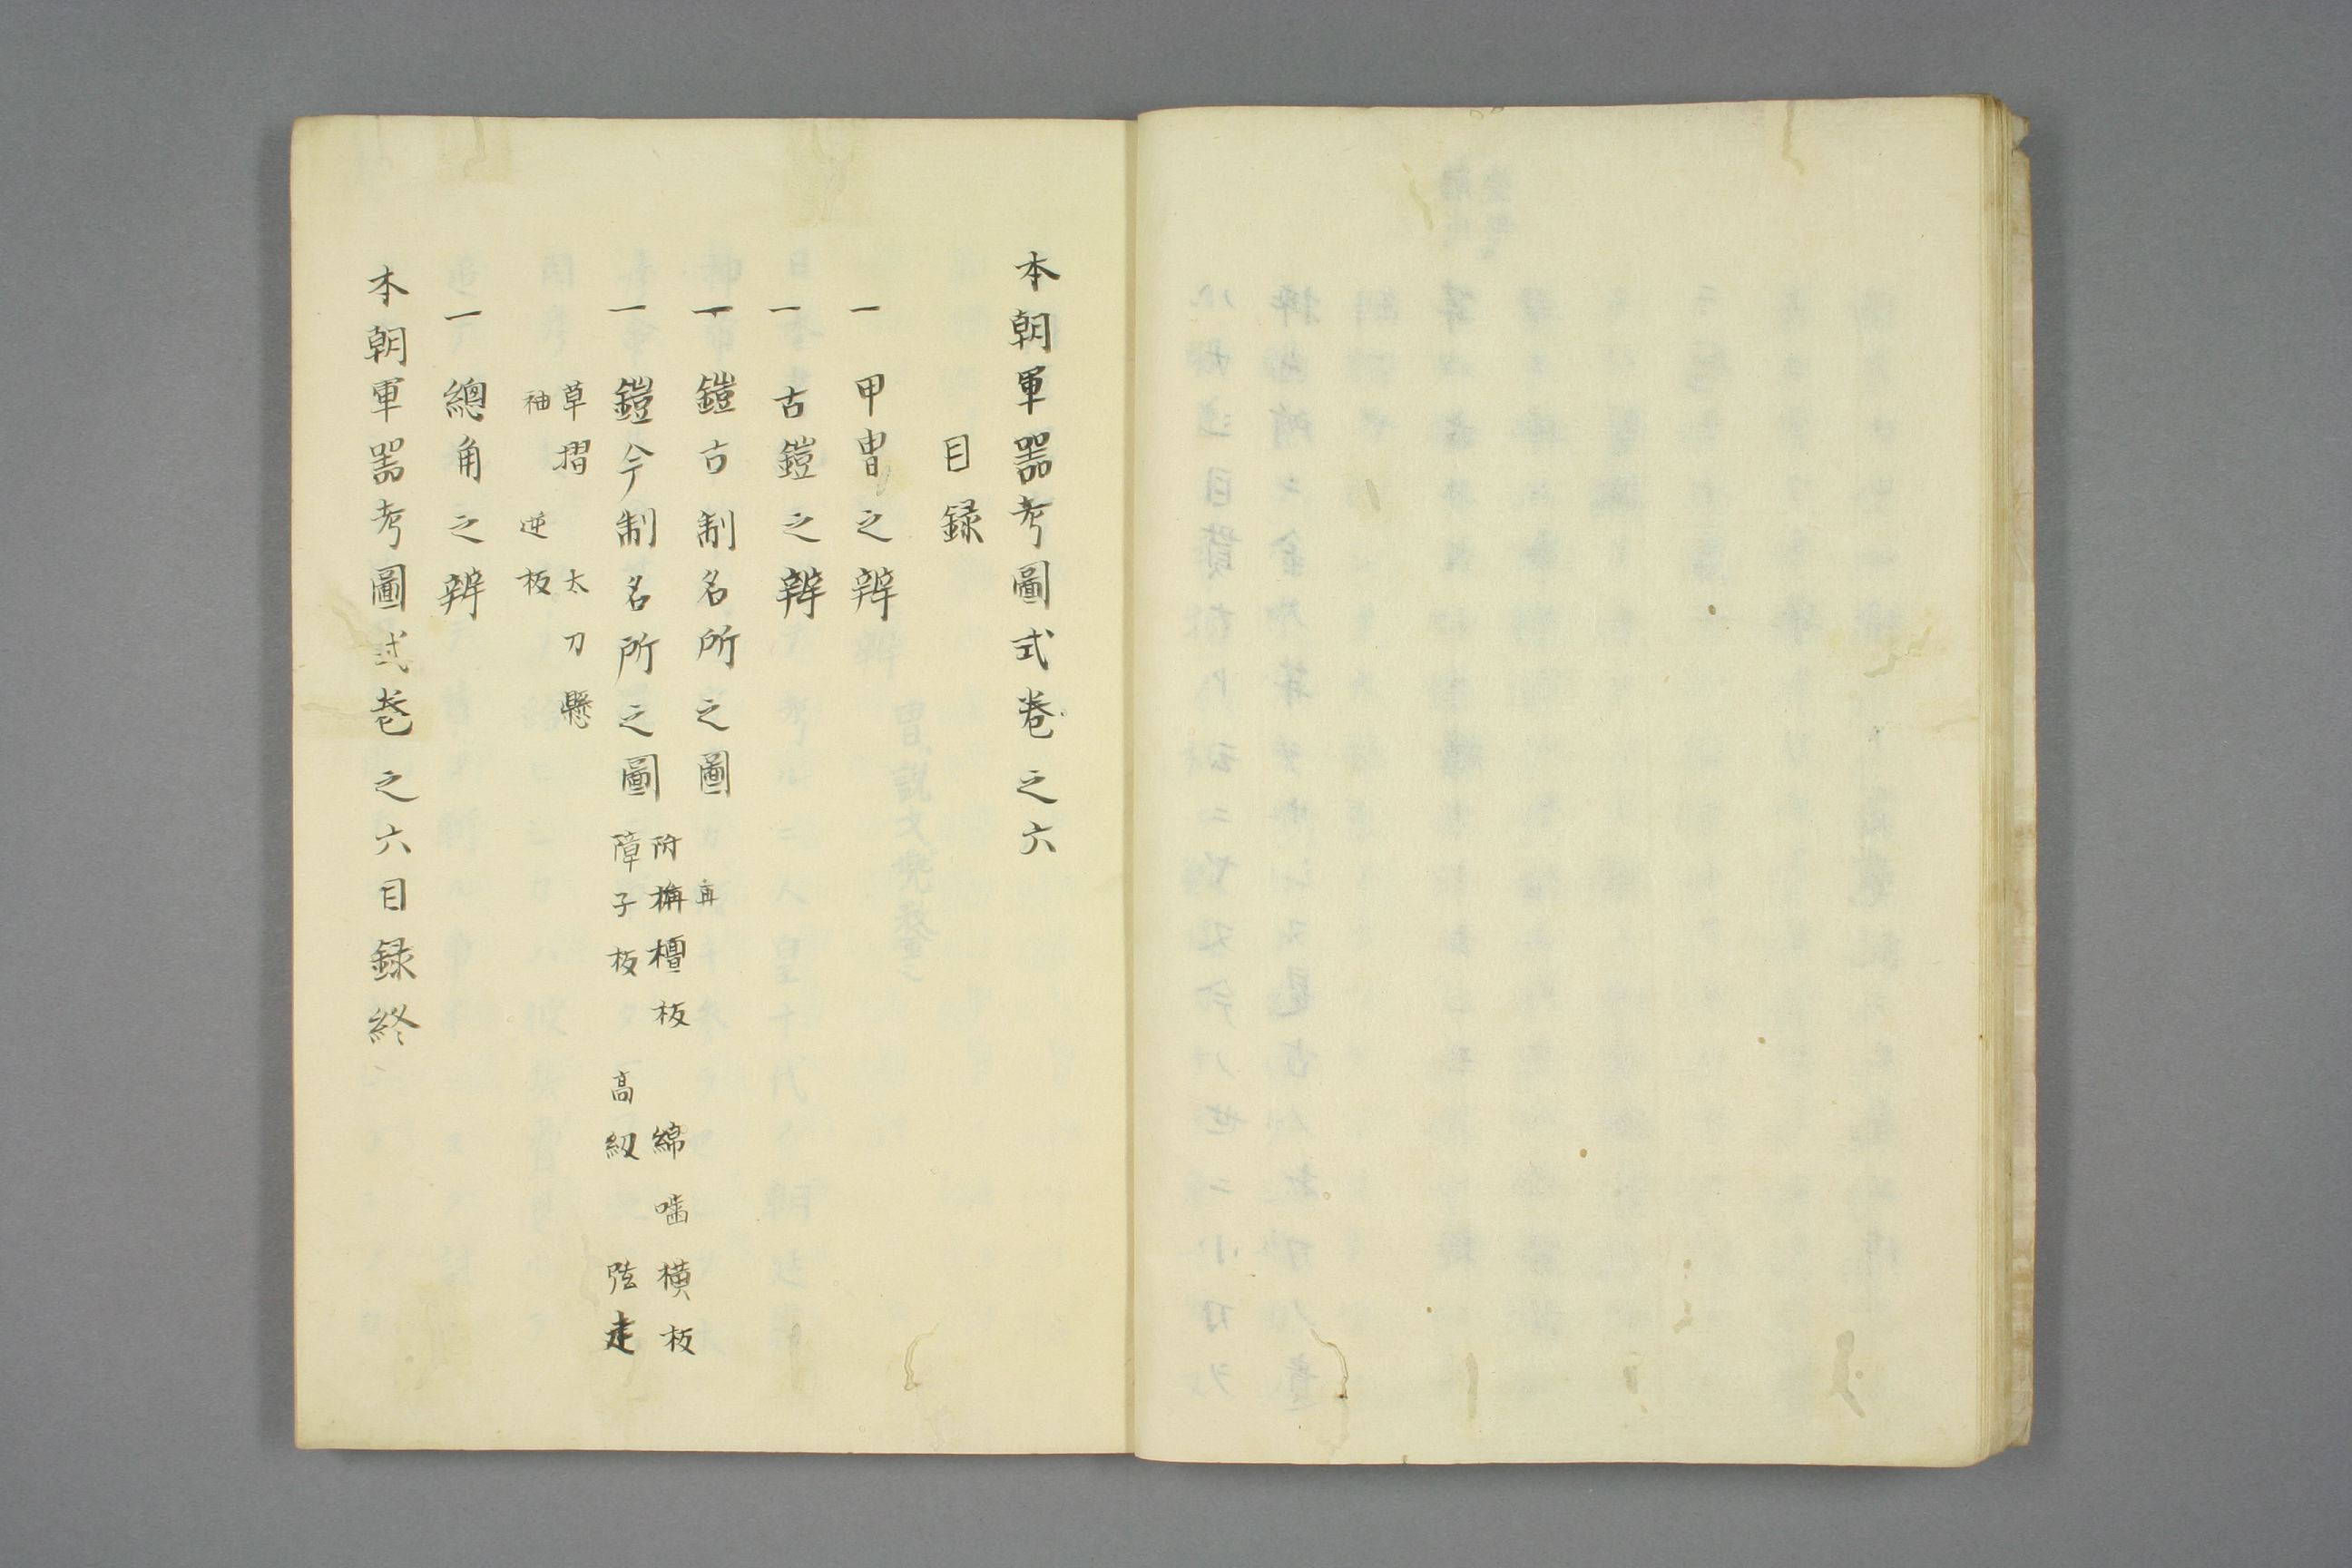 本朝軍器考圖式卷之六
目録
一 甲冑之辨
一 古鎧之辨
一 鎧古制名所之圖
一 鎧今制名所之圖
附 栴檀板 綿噛 横板
障子板 高紐 弦走
草摺 太刀懸
袖 逆板
一 總角之辨
本朝軍器考圖式卷之六目録終